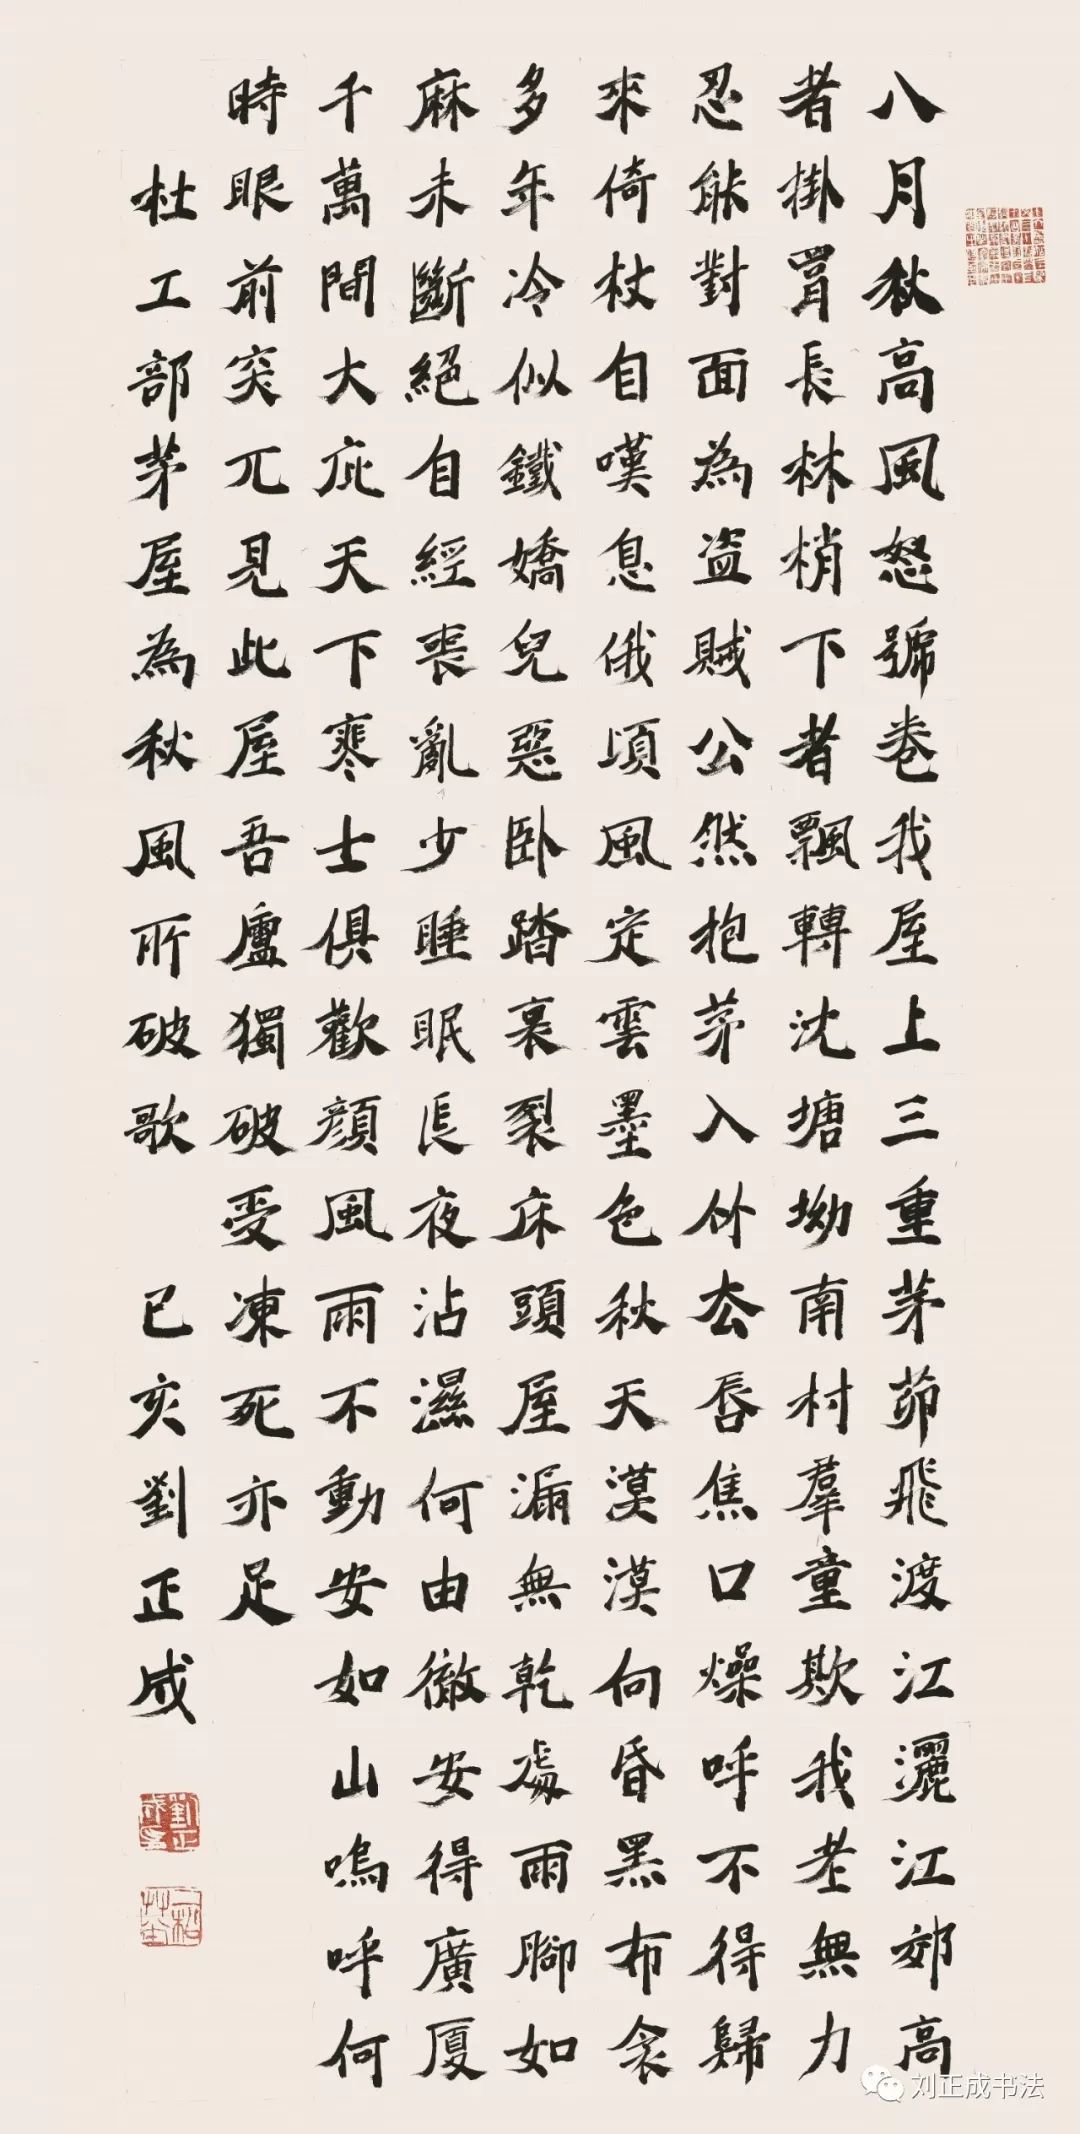 八月秋高風怒號卷我屋上三重茅茆飛渡江灑江郊高
者掛罥長林梢下者飄轉沈塘坳南村羣童欺我老無力
忍能對面為盜賊公然抱茅入竹去唇焦口燥呼不得歸
來倚杖自嘆息俄頃風定雲墨色秋天漠漠向昏黑布衾
多年冷似鐵嬌兒惡卧踏裏裂床頭屋漏無乾處雨腳如
麻未斷絕自經喪亂少睡眠長夜沾濕何由徹安得廣廈
千萬間大庇天下寒士俱歡顏風雨不動安如山嗚呼何
時眼前突兀見此屋吾廬獨破受凍死亦足
杜工部茅屋為秋風所破歌 己亥劉正成
刘正成书法